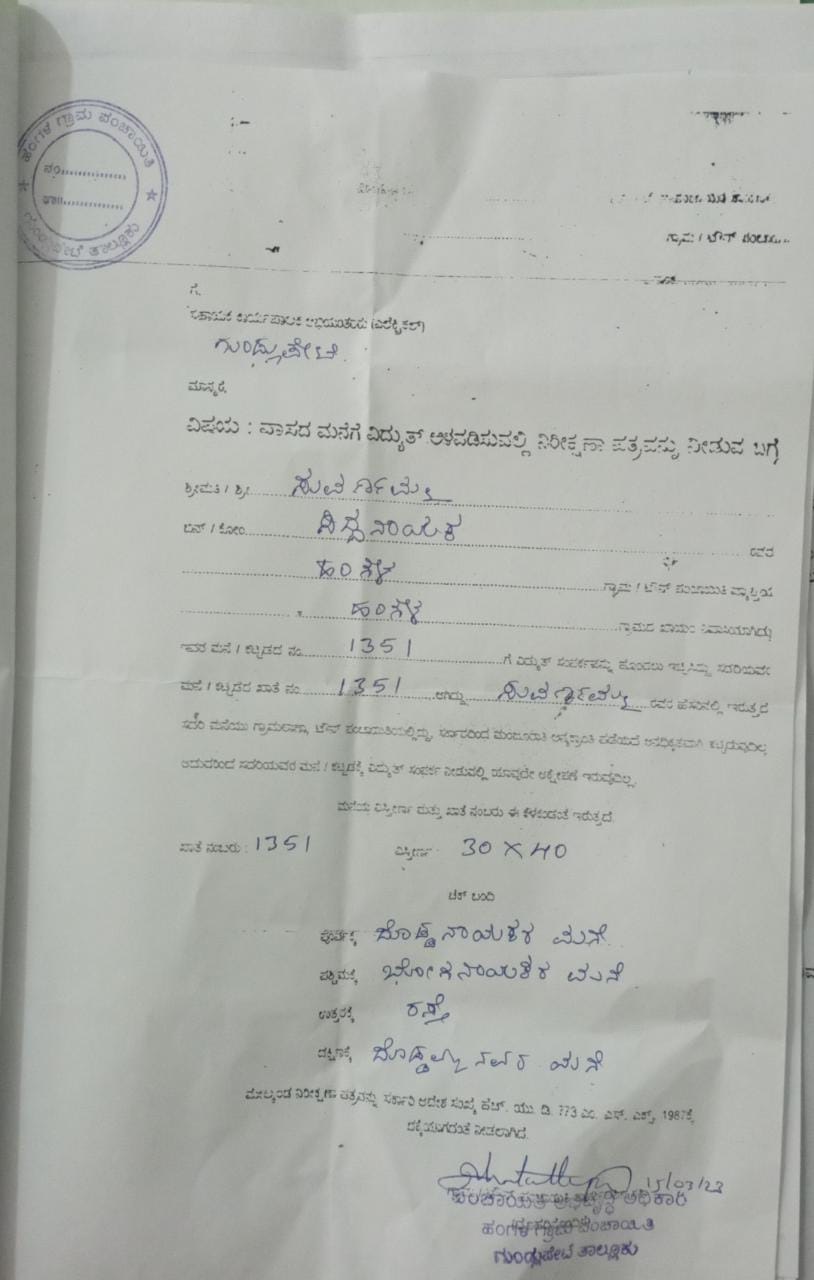 ಹಂಗಳ ಗ್ರಾಮ ಪಂಚಾಯಿತಿ
ನಂ..............
ಗುಂಡ್ಲುಪೇಟೆ ತಾಲ್ಲೂಕು
ಗ್ರಾಮ / ಟೌನ್
ಗೆ,
ಸಹಾಯಕ ಕಾರ್ಯಪಾಲಕ ಅಭಿಯಂತರು (ಎಲೆಕ್ಟ್ರಿಕಲ್)
ಗುಂಡ್ಲುಪೇಟೆ
ಮಾನ್ಯರೆ,
ವಿಷಯ : ವಾಸದ ಮನೆಗೆ ವಿದ್ಯುತ್ ಅಳವಡಿಸುವಲ್ಲಿ ನಿರೀಕ್ಷಣಾ ಪತ್ರವನ್ನು ನೀಡುವ ಬಗ್ಗೆ
ಶ್ರೀಮತಿ / ಶ್ರೀ ಸುವರ್ಣಮ್ಮ
ಬಿನ್ / ಕೋಂ ಸಿದ್ದನಾಯಕ ರವರ
ಹಂಗಳ ಗ್ರಾಮ / ಟೌನ್ ಪಂಚಾಯಿತಿ ವ್ಯಾಪ್ತಿಯ
ಹಂಗಳ ಗ್ರಾಮದ ಖಾಯಂ ನಿವಾಸಿಯಾಗಿದ್ದು
ಇವರ ಮನೆ / ಕಟ್ಟಡದ ನಂ. 1351 ಗೆ ವಿದ್ಯುತ್ ಸಂಪರ್ಕವನ್ನು ಹೊಂದಲು ಇಚ್ಛಿಸಿದ್ದು ಸದರಿಯವರ
ಮನೆ / ಕಟ್ಟಡದ ಖಾತೆ ನಂ. 1351 ಆಗಿದ್ದು ಸುವರ್ಣಮ್ಮ ರವರ ಹೆಸರಿನಲ್ಲಿ ಇರುತ್ತದೆ
ಸದರಿ ಮನೆಯು ಗ್ರಾಮಠಾಣಾ, ಟೌನ್ ಪಂಚಾಯಿತಿಯಲ್ಲಿದ್ದು, ಸರ್ಕಾರದಿಂದ ಮಂಜೂರಾತಿ ಪಡೆಯದೆ ಅನಧಿಕೃತವಾಗಿ ಕಟ್ಟಿರುವುದಿಲ್ಲ
ಆದುದರಿಂದ ಸದರಿಯವರ ಮನೆ / ಕಟ್ಟಡಕ್ಕೆ ವಿದ್ಯುತ್ ಸಂಪರ್ಕ ನೀಡುವಲ್ಲಿ ಯಾವುದೇ ಆಕ್ಷೇಪಣೆ ಇರುವುದಿಲ್ಲ.
ಮನೆಯ ವಿಸ್ತೀರ್ಣ ಮತ್ತು ಖಾತೆ ನಂಬರು ಈ ಕೆಳಕಂಡಂತೆ ಇರುತ್ತದೆ.
ಖಾತೆ ನಂಬರು : 1351 ವಿಸ್ತೀರ್ಣ : 30 X 40
ಚೆಕ್ ಬಂದಿ
ಪೂರ್ವಕ್ಕೆ ದೊಡ್ಡನಾಯಕರ ಮನೆ
ಪಶ್ಚಿಮಕ್ಕೆ ಭೋಗನಾಯಕರ ಮನೆ
ಉತ್ತರಕ್ಕೆ ರಸ್ತೆ
ದಕ್ಷಿಣಕ್ಕೆ ದೊಡ್ಡಮ್ಮನವರ ಮನೆ
ಮೇಲ್ಕಂಡ ನಿರೀಕ್ಷಣಾ ಪತ್ರವನ್ನು ಸರ್ಕಾರಿ ಆದೇಶ ಸಂಖ್ಯೆ ಹೆಚ್. ಯು. ಡಿ. 773 ಎಂ. ಎನ್. ಎಕ್ಸ್. 1987ಕ್ಕೆ
ಧಕ್ಕೆಯಾಗದಂತೆ ನೀಡಲಾಗಿದೆ.
15/03/23
ಪಂಚಾಯಿತಿ ಅಭಿವೃದ್ಧಿ ಅಧಿಕಾರಿ
ಹಂಗಳ ಗ್ರಾಮ ಪಂಚಾಯಿತಿ
ಗುಂಡ್ಲುಪೇಟೆ ತಾಲ್ಲೂಕು